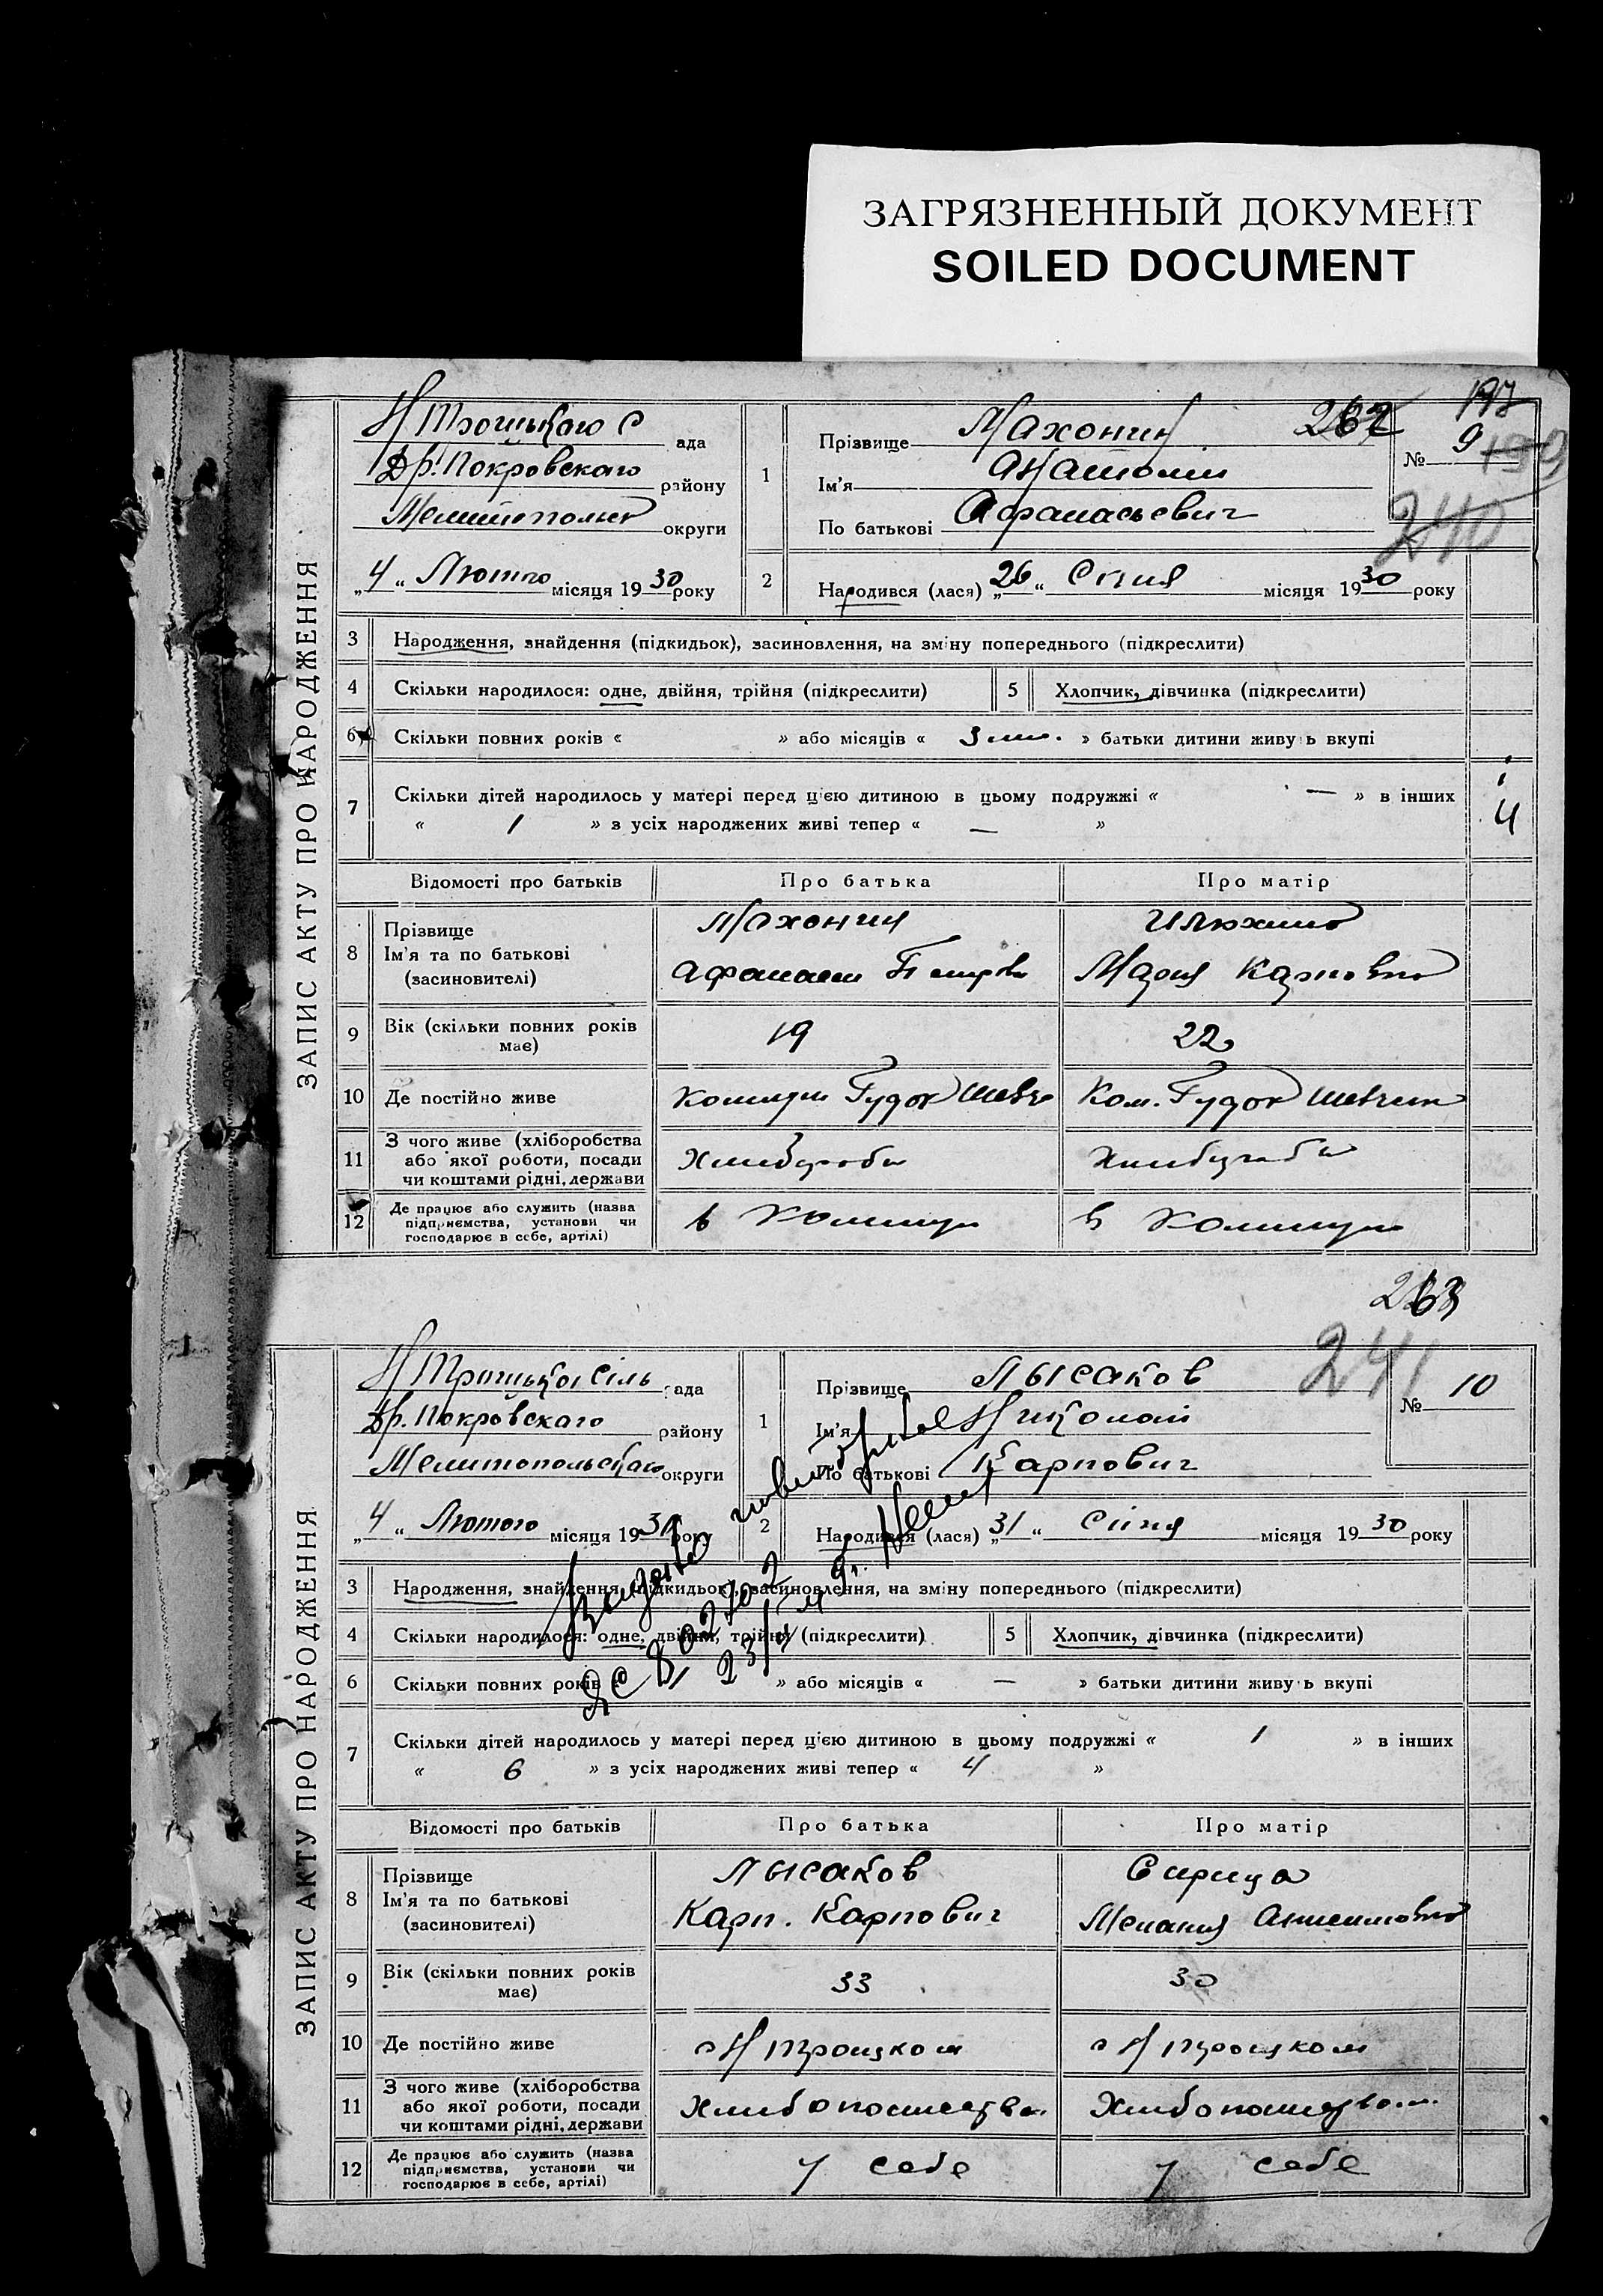 ЗАГРЯЗНЕННЫЙ ДОКУМЕНТ
SOILED DOCUMENT
ЗАПИС АКТУ ПРО НАРОДЖЕННЯ
Н Троицького С ада
Др. Покровскаго району
округи
„4“ Лютого місяця 1930 року
1
Прізвище Махонин
Ім'я Анатолій
По батькові Афанасьевич
262
197
№ 9
240
2
Народився (лася) „26“ Січня місяця 1930 року
3 Народження, знайдення (підкидьок), засиновлення, на зміну попереднього (підкреслити)
4 Скільки народилося: одне, двійня, трійня (підкреслити)
5 Хлопчик, дівчинка (підкреслити)
6 Скільки повних років « » або місяців « 3 » батьки дитини живуть вкупі
7 Скільки дітей народилось у матері перед цією дитиною в цьому подружжі « — » в інших
« 1 » з усіх народжених живі тепер « — »
4
Відомості про батьків
Про батька
Про матір
8 Прізвище
Ім'я та по батькові
(засиновителі)
Махонин
Афанасий
Илюхина
Мария Карповна
9 Вік (скільки повних років
має)
19
22
10 Де постійно живе
Гудок
Ком. Гудок
11 З чого живе (хліборобства
або якої роботи, посади
чи коштами рідні, держави
12 Де працює або служить (назва
підприємства, установи чи
господарює в себе, артілі)
в Коммуні
в Коммуні
263
ЗАПИС АКТУ ПРО НАРОДЖЕННЯ
Н Троицької сіль рада
Др. Покровскаго району
Мелитопольскаго округи
„4“ Лютого місяця 1930 року
1
Прізвище Лысаков
Ім'я Николай
По батькові Карпович
241
№ 10
2
Народився (лася) „31“ Січня місяця 1930 року
3 Народження, знайдення (підкидьок), засиновлення, на зміну попереднього (підкреслити)
4 Скільки народилося: одне, двійня, трійня (підкреслити)
5 Хлопчик, дівчинка (підкреслити)
6 Скільки повних років » або місяців « — » батьки дитини живуть вкупі
7 Скільки дітей народилось у матері перед цією дитиною в цьому подружжі « 1 » в інших
« 6 » з усіх народжених живі тепер « 4 »
Відомості про батьків
Про батька
Про матір
8 Прізвище
Ім'я та по батькові
(засиновителі)
Лысаков
Карп. Карпович
Сирица
Мелания
9 Вік (скільки повних років
має)
33
30
10 Де постійно живе
с Н Троицком
с Н Троицком
11 З чого живе (хліборобства
або якої роботи, посади
чи коштами рідні, держави
12 Де працює або служить (назва
підприємства, установи чи
господарює в себе, артілі)
у себе
у себе